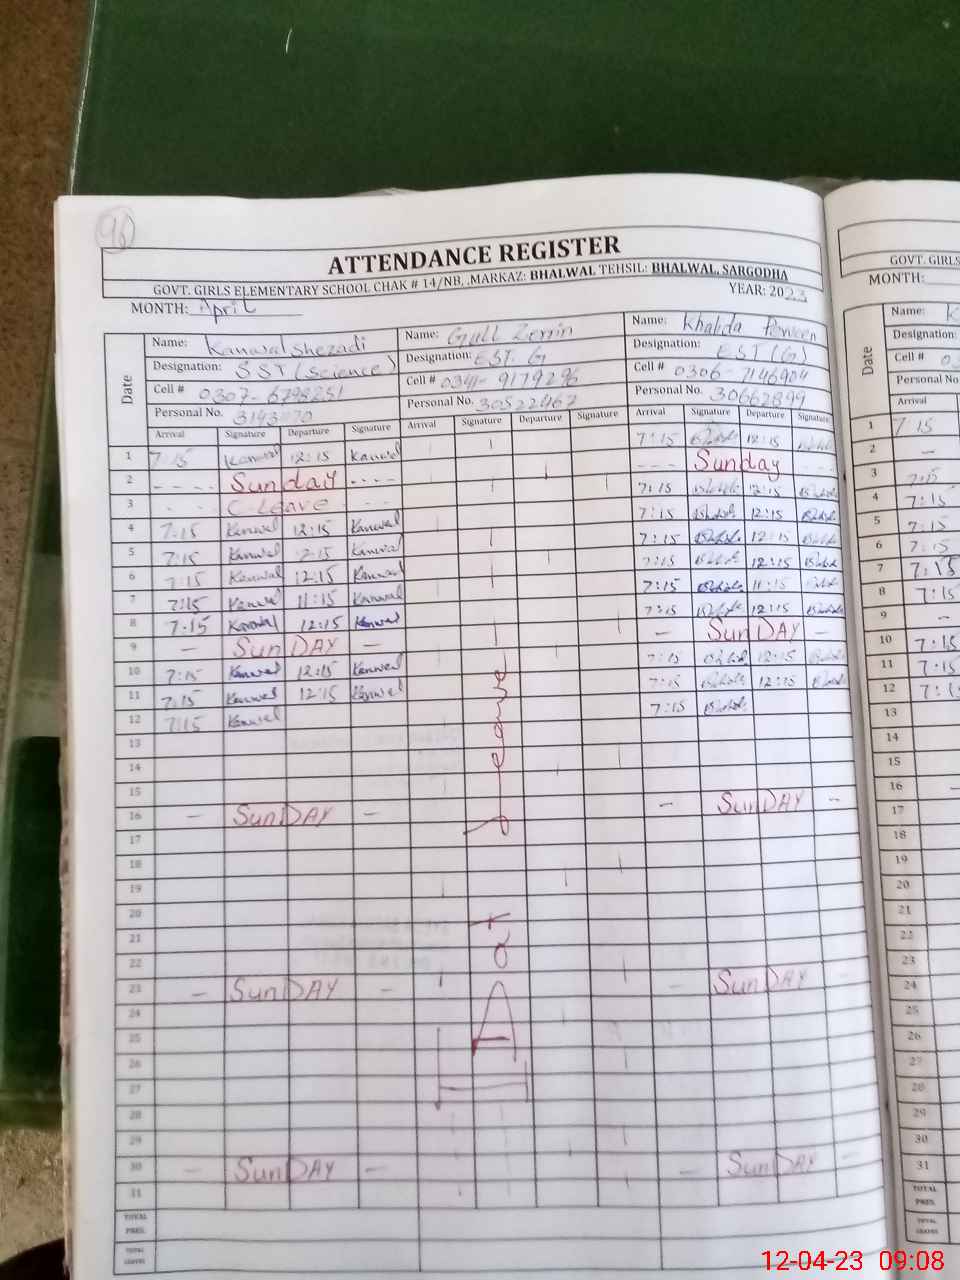 96
ATTENDANCE REGISTER
GOVT. GIRLS ELEMENTARY SCHOOL CHAK # 14/NB, .MARKAZ: BHALWAL TEHSIL: BHALWAL, SARGODHA
MONTH: April YEAR: 2023
Name: Kanwal Shezadi Name: Gull Zerrin Name: Khalida Perveen
Designation: SST (Science) Designation: EST. G Designation: EST (G)
Cell # 0307-6798251 Cell # 0341-9179296 Cell # 0306-7146904
Personal No. Personal No. 30522467 Personal No. 30662899
Date Arrival Signature Departure Signature Arrival Signature Departure Signature Arrival Signature Departure Signature
1 7:15 Kanwal 12:15 Kanwal 7:15 12:15
2 Sunday Sunday
3 C-Leave 7:15 12:15
4 7:15 Kanwal 12:15 Kanwal 7:15 12:15
5 7:15 Kanwal 12:15 Kanwal 7:15 12:15
6 7:15 Kanwal 12:15 Kanwal 7:15 12:15
7 7:15 Kanwal 11:15 Kanwal 7:15 11:15
8 7:15 Kanwal 12:15 Kanwal 7:15 12:15
9 — SunDAY — — SunDAY —
10 7:15 Kanwal 12:15 Kanwal 7:15 12:15
11 7:15 Kanwal 12:15 Kanwal 7:15 12:15
12 7:15 Kanwal 7:15
13
14
15
16 — SunDAY — — SunDAY —
17
18
19
20
21
22
23 — SunDAY — — SunDAY —
24
25
26
27
28
29
30 — SunDAY — — SunDAY —
31
TOTAL PRES.
TOTAL LEAVES
Leave
GOVT. GIRLS
MONTH:
Name: K
Designation:
Cell # 03
Personal No
Date Arrival
1 7:15
2 —
3 7:15
4 7:15
5 7:15
6 7:15
7 7:15
8 7:15
9 -
10 7:15
11 7:15
12 7:15
13
14
15
16 -
17
18
19
20
21
22
23
24
25
26
27
28
29
30
31
TOTAL PRES.
TOTAL LEAVES
12-04-23 09:08